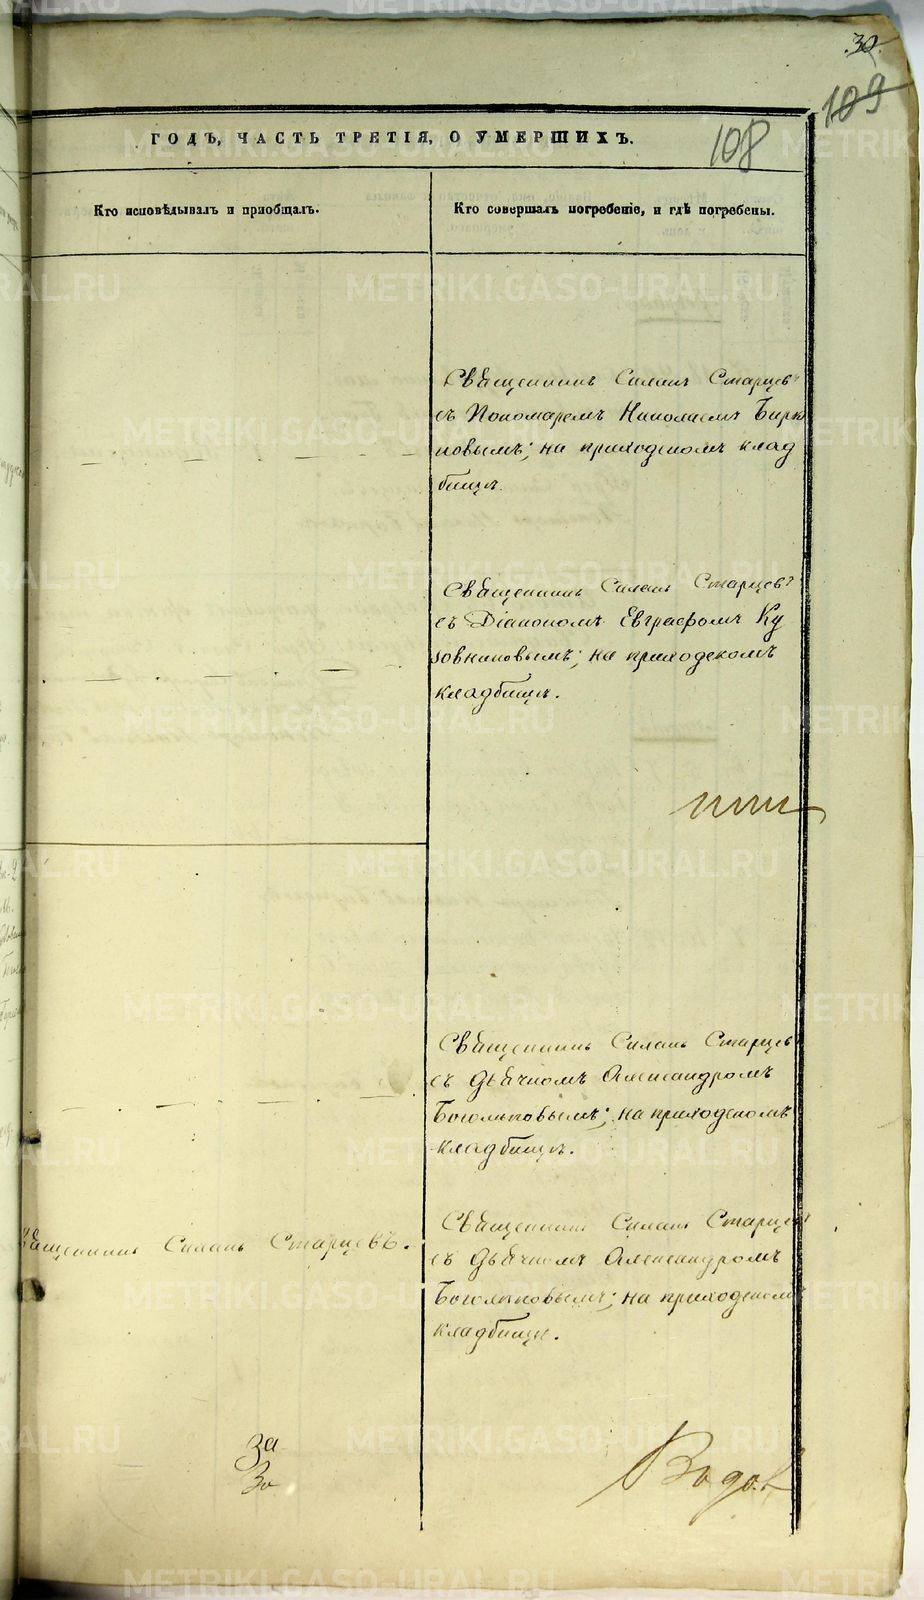 30.
109
108
ГОДЪ, ЧАСТЬ ТРЕТІЯ, О УМЕРШИХЪ.
Кто исповѣдывалъ и пріобщалъ.
Кто совершалъ погребеніе, и гдѣ погребены.
Священникъ Силанъ Старцевъ
съ Пономаремъ Николаемъ Бирю
ковымъ; на приходскомъ клад
бищѣ.
Священникъ Силанъ Старцевъ
съ Діакономъ Евграфомъ Ку
зовниковымъ; на приходскомъ
кладбищѣ.
Священникъ Силанъ Старцев
съ Дьячкомъ Александромъ
Боголѣповымъ; на приходскомъ
кладбищѣ.
Священникъ Силанъ Старцевъ.
Священникъ Силанъ Старцев
съ Дьячкомъ Александромъ
Боголѣповымъ; на приходскомъ
кладбищѣ.
За
METRIKI.GASO-URAL.RU